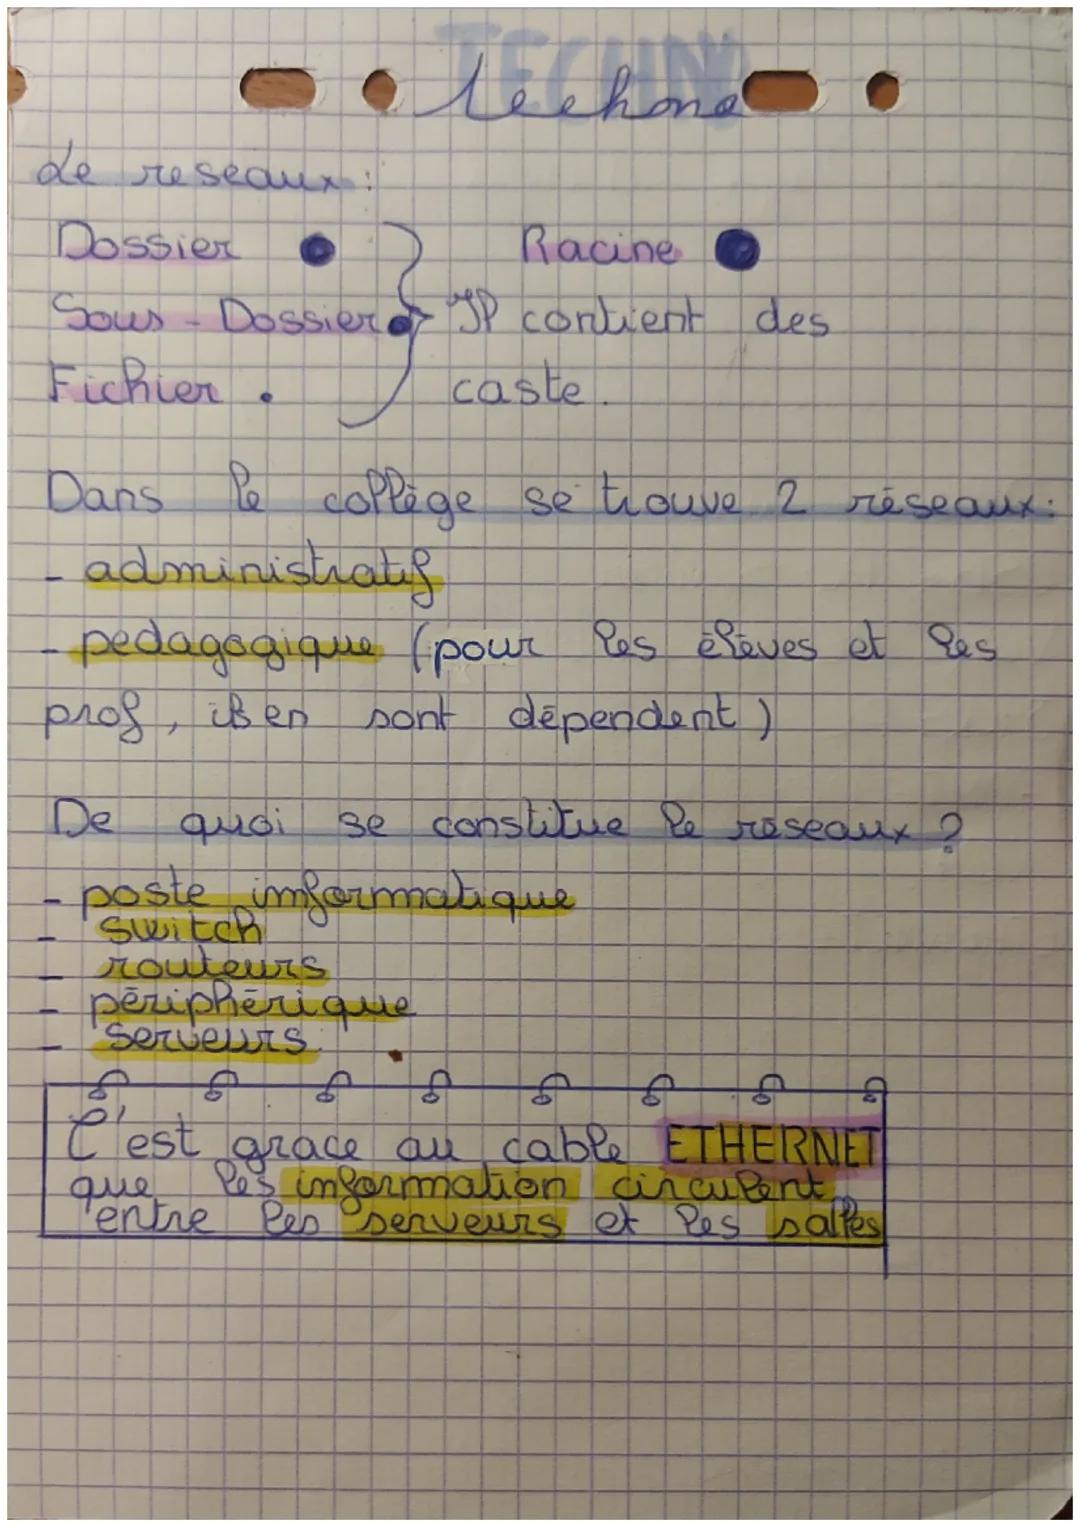 TECHN
Techno
Le reseaux :
Dossier
Racine
Sous - Dossier
Il contient des
Fichier .
caste.
Dans le collège se trouve 2 réseaux :
- administratif
- pedagogique (pour les élèves et les
prof, ils en sont dépendent)
De quoi se constitue le réseaux ?
- poste informatique
- switch
- routeurs
- périphérique
- serveurs.
C'est grace au cable ETHERNET
que les information circulent
entre les serveurs et les salles